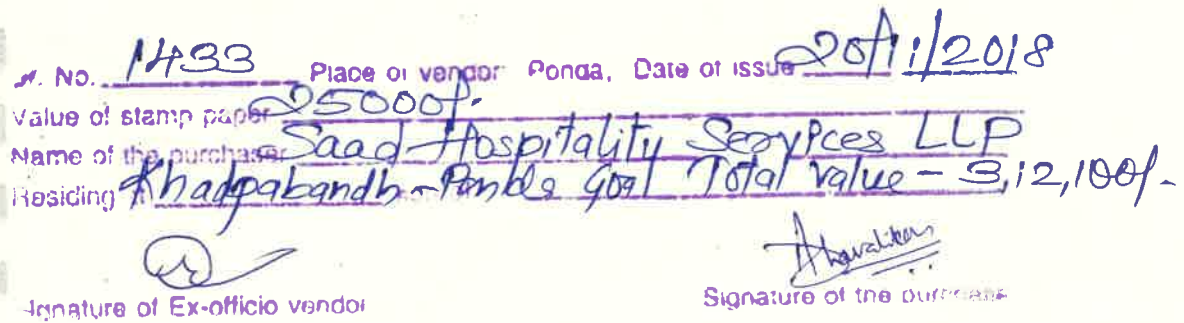 No. 1433 Place of vendor Ponda, Date of issue 20/11/2018
Value of stamp paper 25000/-
Name of the purchaser Saad Hospitality Services LLP
Residing Khadpabandh - Ponda Goa Total Value - 3,12,100/-
Signature of Ex-officio vendor Signature of the purchaser